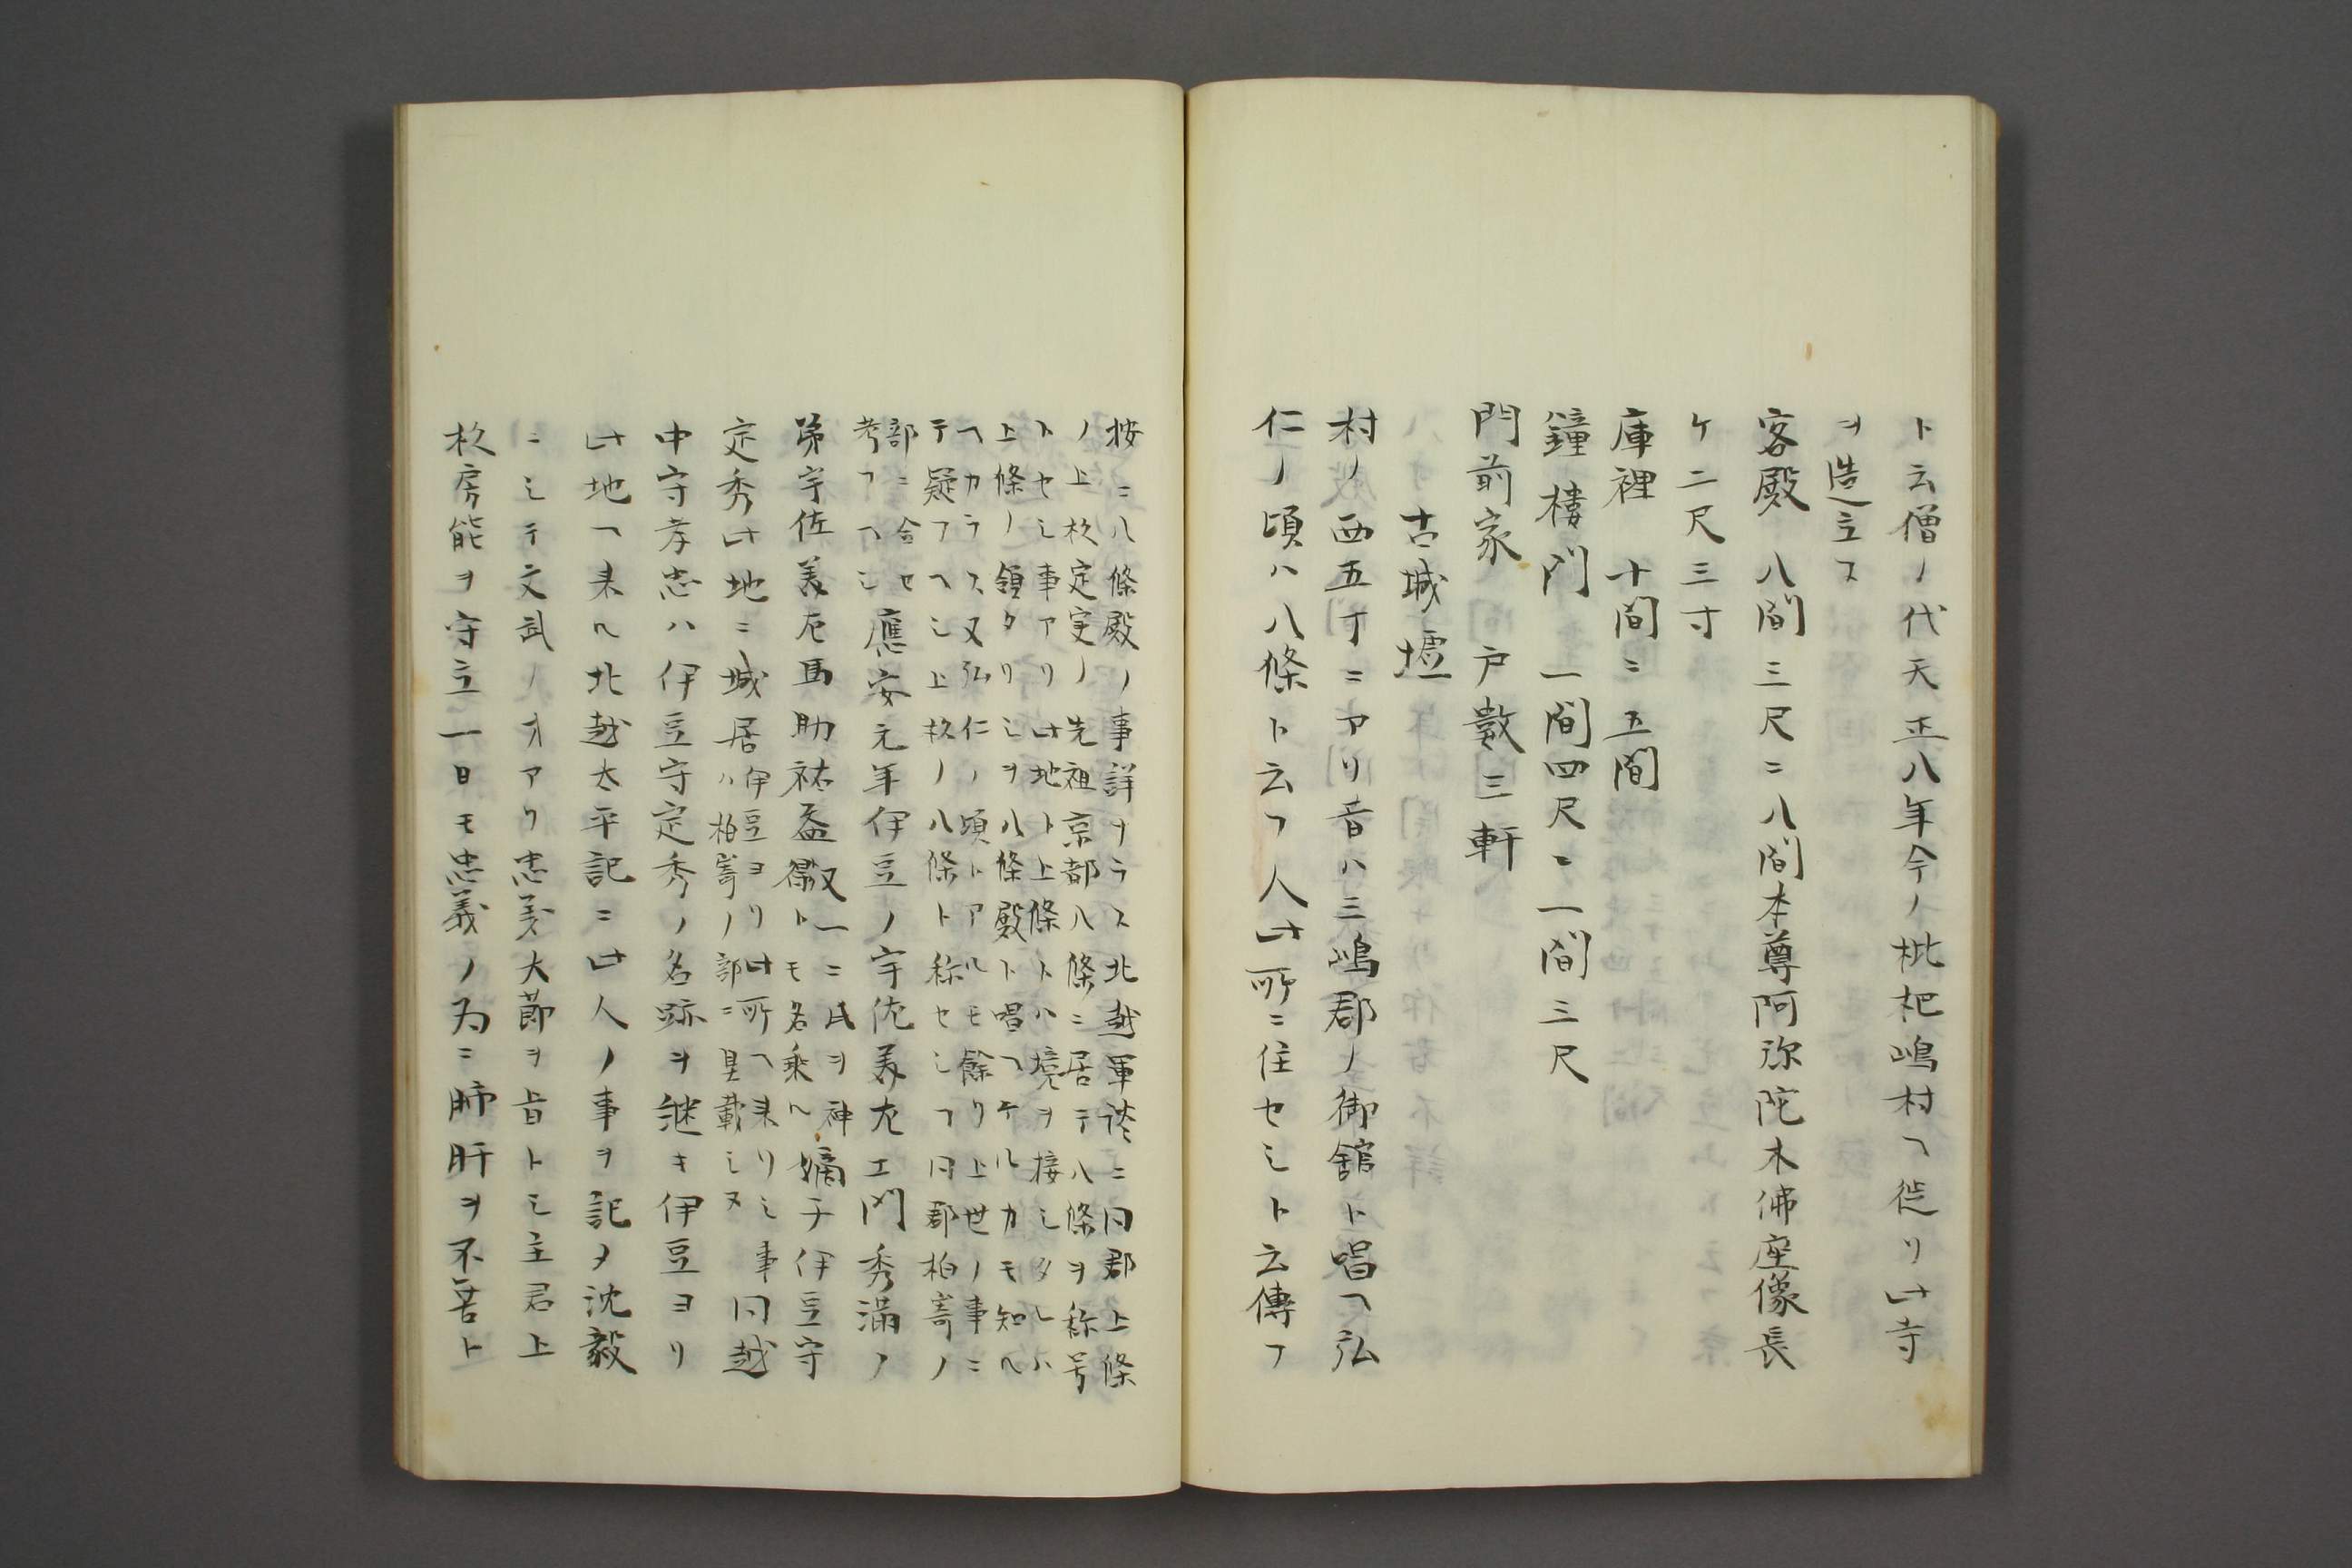 ト云僧ノ代天正八年今ノ枇杷嶋村ヘ徙リ此寺
ヲ造立ス
客殿　八間三尺ニ八間本尊阿弥陀木佛座像長
ケ二尺三寸
庫裡　十間ニ五間
鐘樓門　一間四尺ニ一間三尺
門前家　戸數三軒
古城墟
村ノ西五寸ニアリ昔ハ三嶋郡ノ御舘ト唱ヘ弘
仁ノ頃ハ八條ト云フ人此所ニ住セシト云傳フ
按ニ八條殿ノ事詳ナラス北越軍談ニ同郡上條
ノ上杦定実ノ先祖京都八條ニ居テ八條ヲ称号
トセシ事アリ此地ト上條トハ境ヲ接シタレハ
上條ノ領タリシヲ八條殿ト唱ヘケルカモ知ヘ
ヘカラス又弘仁ノ頃トアルモ餘リ上世ノ事ニ
テ疑フヘシ上杦ノ八條ト称セシフ同郡柏嵜ノ
部ニ合セ
考フヘシ應安元年伊豆ノ宇佐美左エ門秀満ノ
弟宇佐美左馬助祐益又一ニ氏ヲ神
トモ名乗ヘ嫡子伊豆守
定秀此地ニ城居伊豆ヨリ此所ヘ来リシ事
ハ柏嵜ノ部ニ具載シヌ同越
中守孝忠ハ伊豆守定秀ノ名跡ヲ継キ伊豆ヨリ
此地ヘ来ヘ北越太平記ニ此人ノ事ヲ記ヲ沈毅
ニシテ文武ノ才アリ忠義大節ヲ旨トシ主君上
杦房能ヲ守立一日モ忠義ノ為ニ肺肝ヲ不苦ト